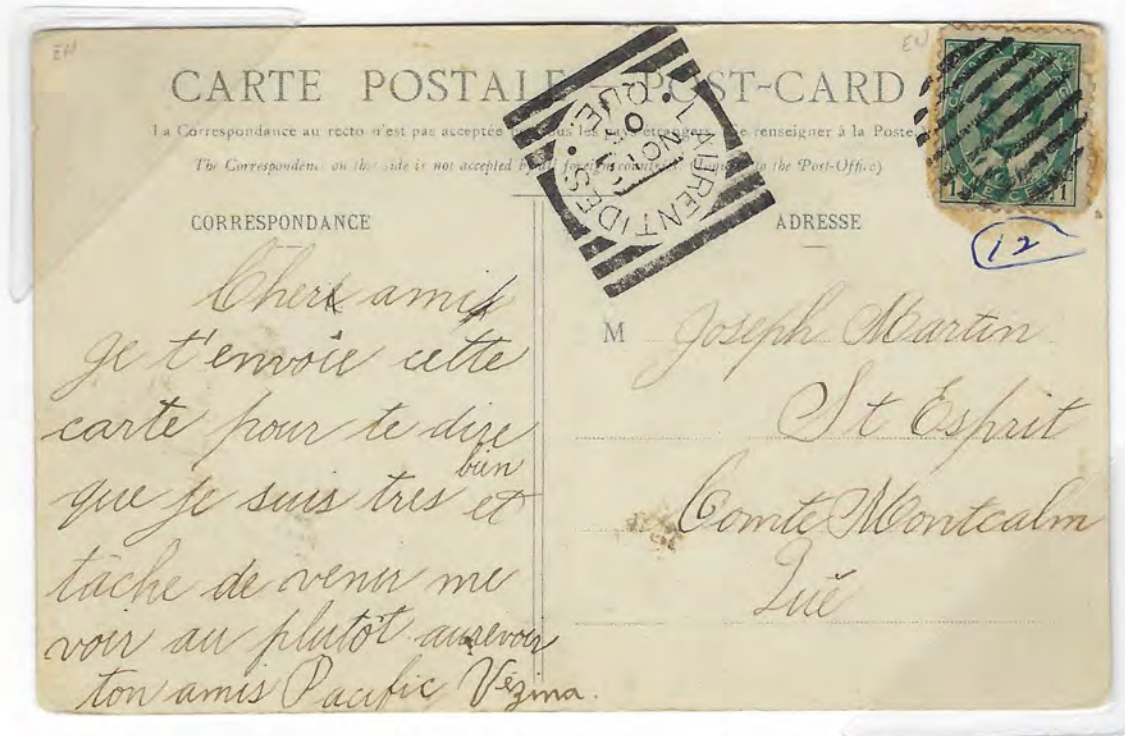 EN
EN
CARTE POSTALE – POST-CARD
La Correspondance au recto n'est pas acceptée par tous les pays étrangers. Se renseigner à la Poste.
The Correspondence on this side is not accepted by all foreign countries. to the Post-Office)
LAURENTIDES
QUE.
NO
CORRESPONDANCE
Cher ami
je t'envoie cette
carte pour te dire
que je suis tres bien et
tâche de venir me
voir au plutôt aurevoir
ton amis Pacific Vézina.
ADRESSE
12
M Joseph Martin
St Esprit
Comte Montcalm
Què